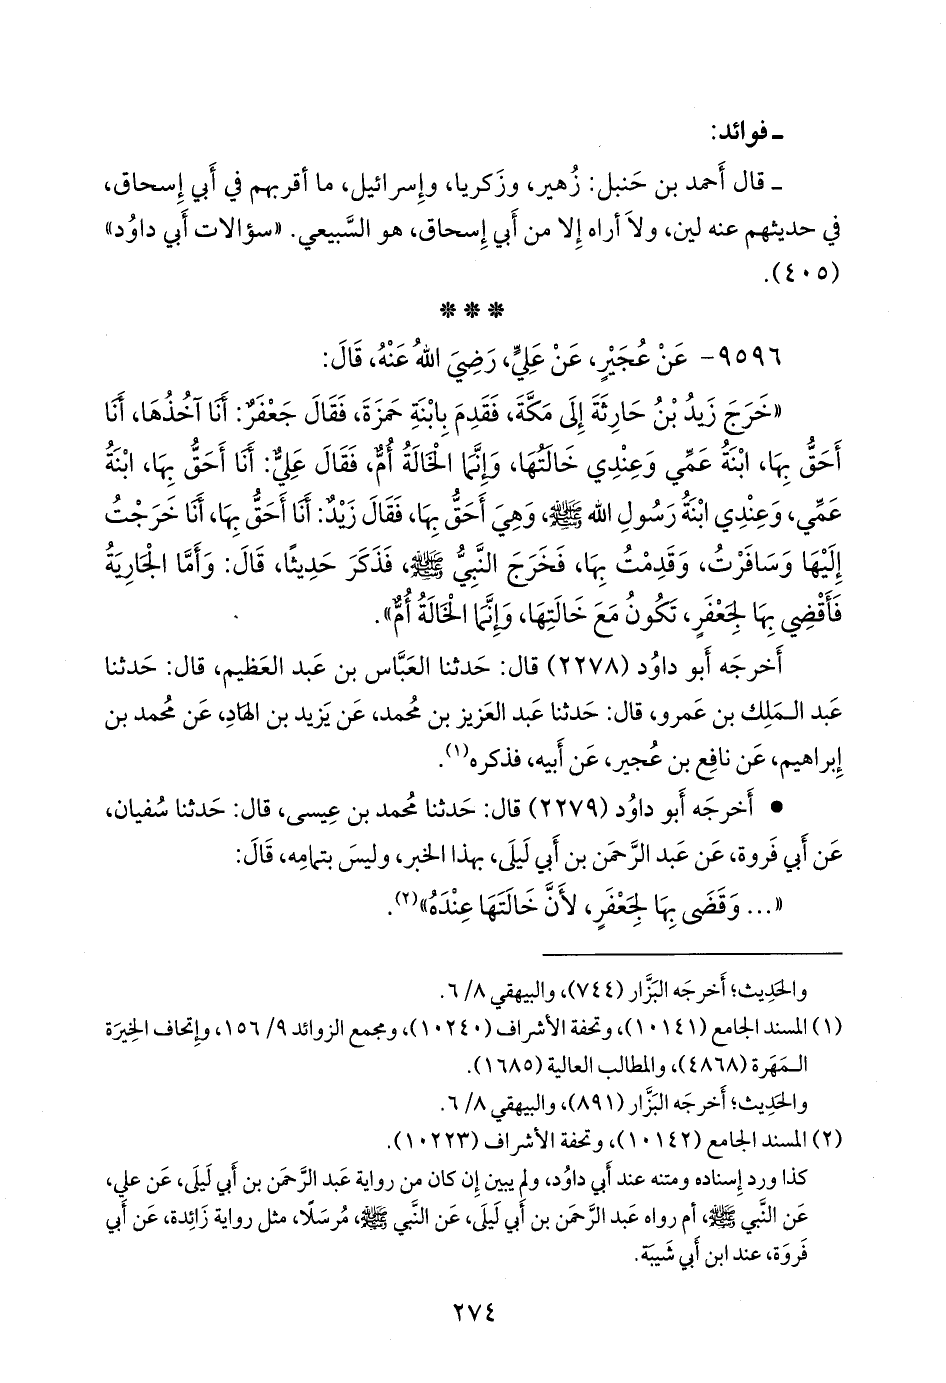 ـ فوائد:
ـ قال أَحمد بن حَنبل: زُهير، وزَكريا، وإِسرائيل، ما أقربهم في أَبي إِسحاق،
في حديثهم عنه لين، ولاَ أراه إِلا من أَبي إِسحاق، هو السَّبيعي. «سؤالات أبي داوُد»
(٤٠٥).
* * *
٩٥٩٦- عَنْ عُجَيْرٍ، عَنْ عَلِيٍّ، رَضِيَ اللهُ عَنْهُ، قَالَ:
«خَرَجَ زَيدُ بْنُ حَارِثَةَ إِلَى مَكَّةَ، فَقَدِمَ بِابْنَةِ حَمْزَةَ، فَقَالَ جَعْفَرٌ: أَنَا آخُذُهَا، أَنَا
أَحَقُّ بِهَا، ابْنَةُ عَمِّي وَعِنْدِي خَالَتُهَا، وَإِنَّمَا الْخَالَةُ أُمٌّ، فَقَالَ عَلِيٌّ: أَنَا أَحَقُّ بِهَا، ابْنَةُ
عَمِّي، وَعِنْدِي ابْنَةُ رَسُولِ الله ﷺ، وَهِيَ أَحَقُّ بِهَا، فَقَالَ زَيْدٌ: أَنَا أَحَقُّ بِهَا، أَنَا خَرَجْتُ
إِلَيْهَا وَسَافَرْتُ، وَقَدِمْتُ بِهَا، فَخَرَجَ النَّبِيُّ ﷺ، فَذَكَرَ حَدِيثًا، قَالَ: وَأَمَّا الْجَارِيَةُ
فَأَقْضِي بِهَا لِجَعْفَرٍ، تَكُونُ مَعَ خَالَتِهَا، وَإِنَّمَا الْخَالَةُ أُمٌّ».
أَخرجَه أَبو داوُد (٢٢٧٨) قال: حَدثنا العَبَّاس بن عَبد العَظيم، قال: حَدثنا
عَبد الـمَلِك بن عَمرو، قال: حَدثنا عَبد العَزيز بن مُحمد، عَن يَزيد بن الهَادِ، عَن مُحمد بن
إِبراهيم، عَن نافِع بن عُجير، عَن أَبيه، فذكره(١).
● أَخرجَه أَبو داوُد (٢٢٧٩) قال: حَدثنا مُحمد بن عِيسى، قال: حَدثنا سُفيان،
عَن أَبي فَروة، عَن عَبد الرَّحمَن بن أَبي لَيلَى، بهذا الخبر، وليسَ بتمامِه، قَالَ:
«... وَقَضَى بِهَا لِجَعْفَرٍ، لأَنَّ خَالَتَهَا عِنْدَهُ»(٢).
والحَدِيث؛ أَخرجَه البَزَّار (٧٤٤)، والبيهقي ٨/ ٦.
(١) المسند الجامع (١٠١٤١)، وتحفة الأشراف (١٠٢٤٠)، ومجمع الزوائد ٩/ ١٥٦، وإتحاف الخِيرَة
الـمَهَرة (٤٨٦٨)، والمطالب العالية (١٦٨٥).
والحَدِيث؛ أَخرجَه البَزَّار (٨٩١)، والبيهقي ٨/ ٦.
(٢) المسند الجامع (١٠١٤٢)، وتحفة الأشراف (١٠٢٢٣).
كذا ورد إِسناده ومتنه عند أَبي داوُد، ولم يبين إِن كان من رواية عَبد الرَّحمَن بن أَبي لَيلَى، عَن علي،
عَن النَّبي ﷺ، أم رواه عَبد الرَّحمَن بن أَبي لَيلَى، عَن النَّبي ﷺ، مُرسَلًا، مثل رواية زَائِدة، عَن أَبي
فَروَة، عند ابن أَبي شَيبَة.
٢٧٤